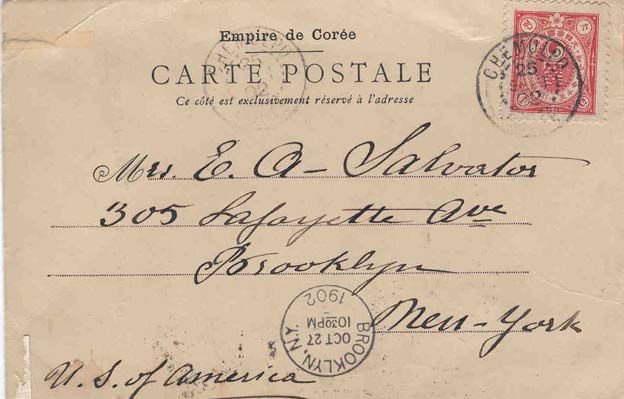 Empire de Corée
CARTE POSTALE
Ce côté est exclusivement réservé à l'adresse
CHEMULPO
25
Mrs. E. A- Salvator
305 Lafayette Ave
Brooklyn
New-York
U.S. of America
BROOKLYN, N.Y.
OCT 27
10-30PM
1902